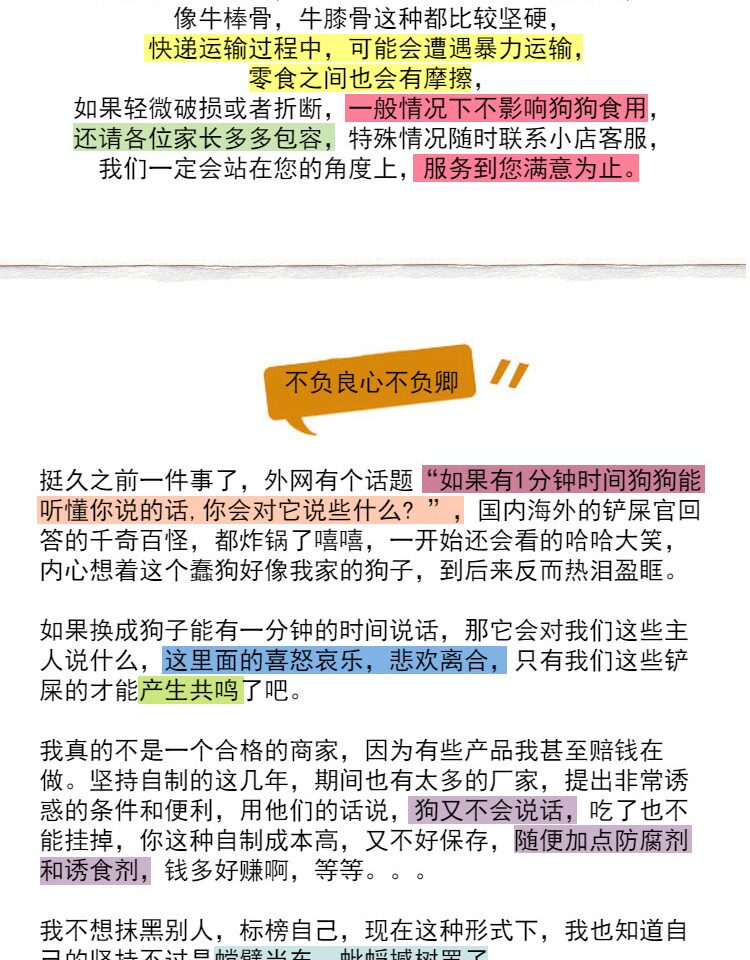 像牛棒骨，牛膝骨这种都比较坚硬，
快递运输过程中，可能会遭遇暴力运输，
零食之间也会有摩擦，
如果轻微破损或者折断，一般情况下不影响狗狗食用，
还请各位家长多多包容，特殊情况随时联系小店客服，
我们一定会站在您的角度上，服务到您满意为止。
不负良心不负卿
挺久之前一件事了，外网有个话题“如果有1分钟时间狗狗能
听懂你说的话,你会对它说些什么？”，国内海外的铲屎官回
答的千奇百怪，都炸锅了嘻嘻，一开始还会看的哈哈大笑，
内心想着这个蠢狗好像我家的狗子，到后来反而热泪盈眶。
如果换成狗子能有一分钟的时间说话，那它会对我们这些主
人说什么，这里面的喜怒哀乐，悲欢离合，只有我们这些铲
屎的才能产生共鸣了吧。
我真的不是一个合格的商家，因为有些产品我甚至赔钱在
做。坚持自制的这几年，期间也有太多的厂家，提出非常诱
惑的条件和便利，用他们的话说，狗又不会说话，吃了也不
能挂掉，你这种自制成本高，又不好保存，随便加点防腐剂
和诱食剂，钱多好赚啊，等等。。。
我不想抹黑别人，标榜自己，现在这种形式下，我也知道自
己的坚持不过是螳臂当车，蚍蜉撼树罢了